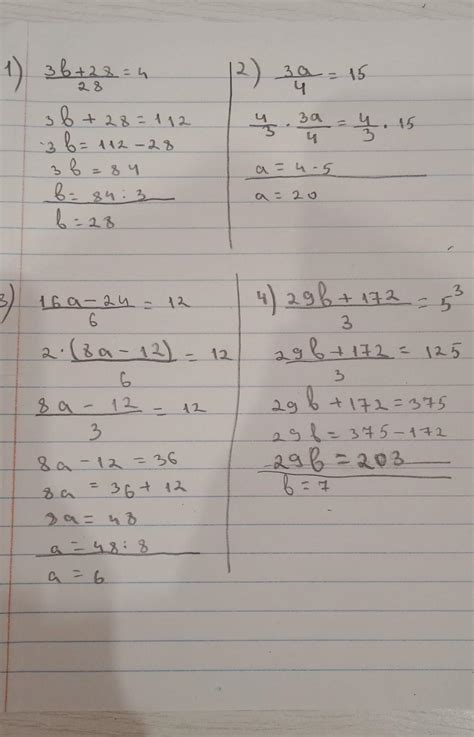 1) (3b+28)/28 = 4
3b + 28 = 112
3b = 112 - 28
3b = 84
b = 84 : 3
b = 28
2) 3a/4 = 15
4/3 · 3a/4 = 4/3 · 15
a = 4 · 5
a = 20
3) (16a - 24)/6 = 12
2·(8a - 12)/6 = 12
(8a - 12)/3 = 12
8a - 12 = 36
8a = 36 + 12
8a = 48
a = 48 : 8
a = 6
4) (29b + 172)/3 = 5³
(29b + 172)/3 = 125
29b + 172 = 375
29b = 375 - 172
29b = 203
b = 7